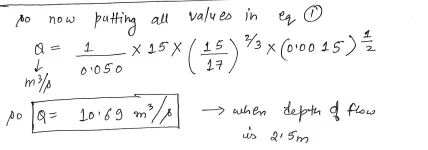 so now putting all values in eq ①
Q = 1/0.050 × 15 × (15/17)^2/3 × (0.0015)^1/2
↓
m³/s
so Q = 10.69 m³/s → when depth of flow
is 2.5m